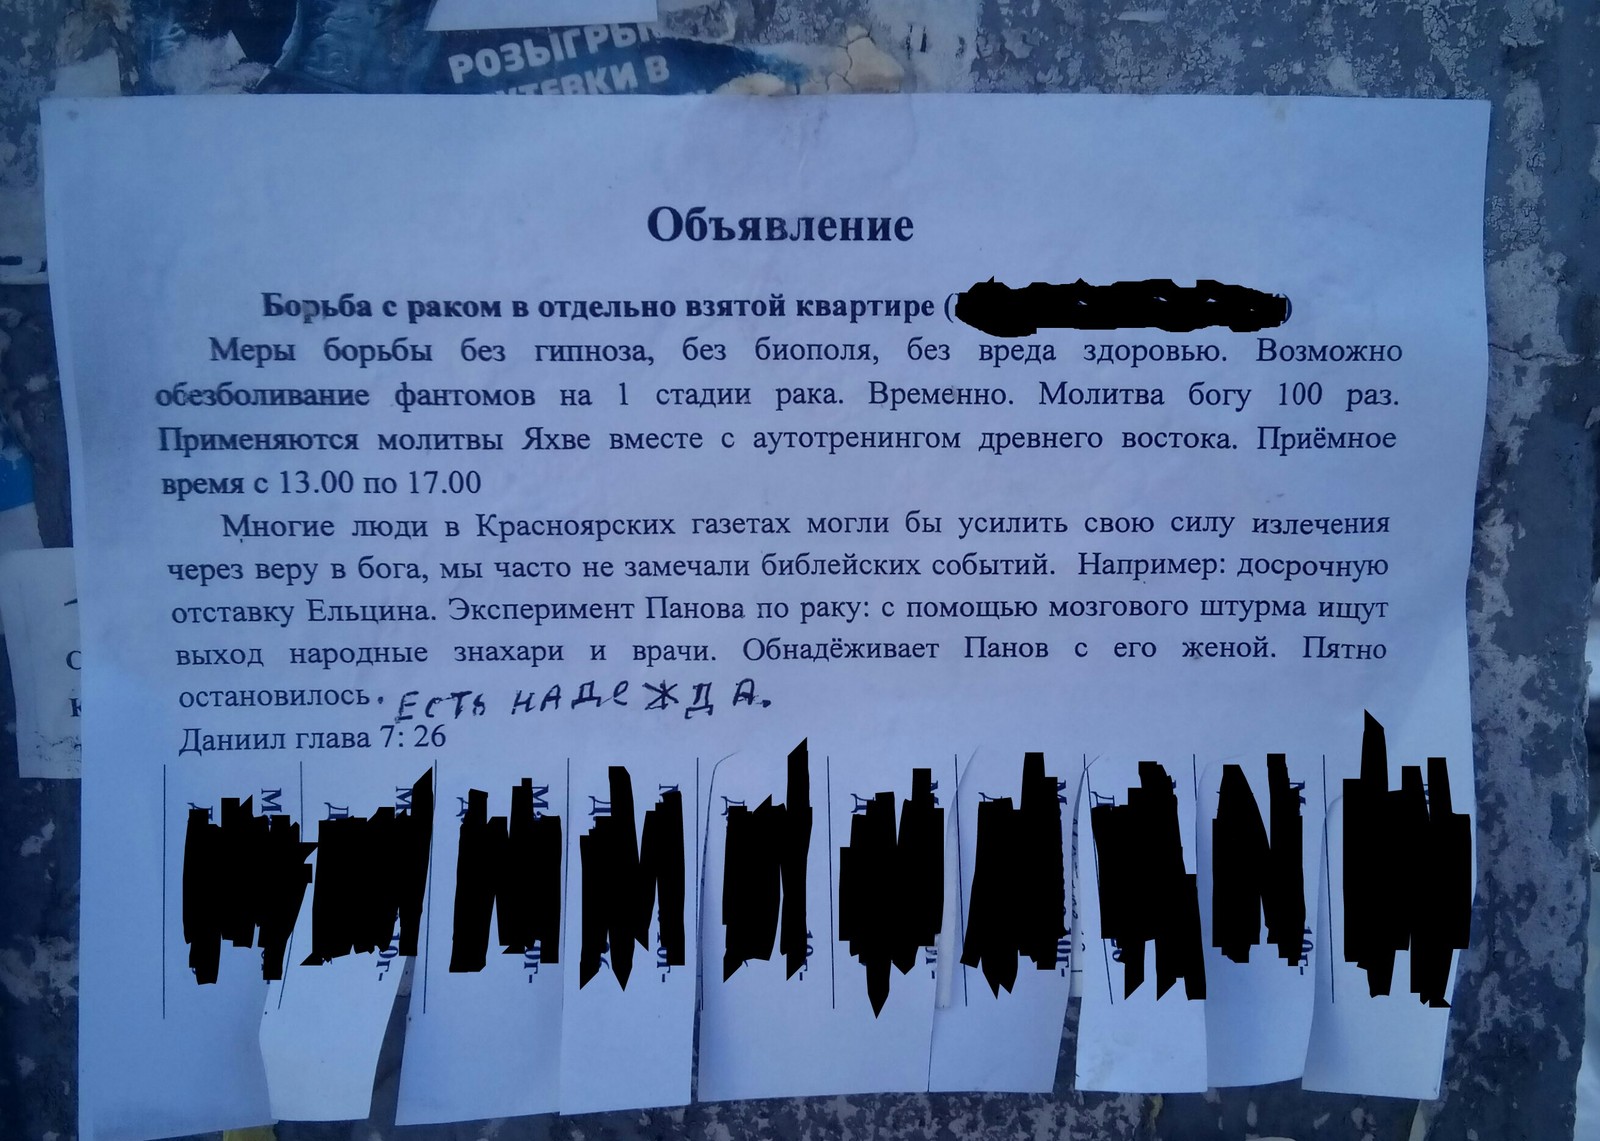 РОЗЫГРЫ
В
Объявление
Борьба с раком в отдельно взятой квартире ( )
Меры борьбы без гипноза, без биополя, без вреда здоровью. Возможно
обезболивание фантомов на 1 стадии рака. Временно. Молитва богу 100 раз.
Применяются молитвы Яхве вместе с аутотренингом древнего востока. Приёмное
время с 13.00 по 17.00
Многие люди в Красноярских газетах могли бы усилить свою силу излечения
через веру в бога, мы часто не замечали библейских событий. Например: досрочную
отставку Ельцина. Эксперимент Панова по раку: с помощью мозгового штурма ищут
выход народные знахари и врачи. Обнадёживает Панов с его женой. Пятно
остановилось. ЕСТЬ НАДЕЖДА.
Даниил глава 7: 26